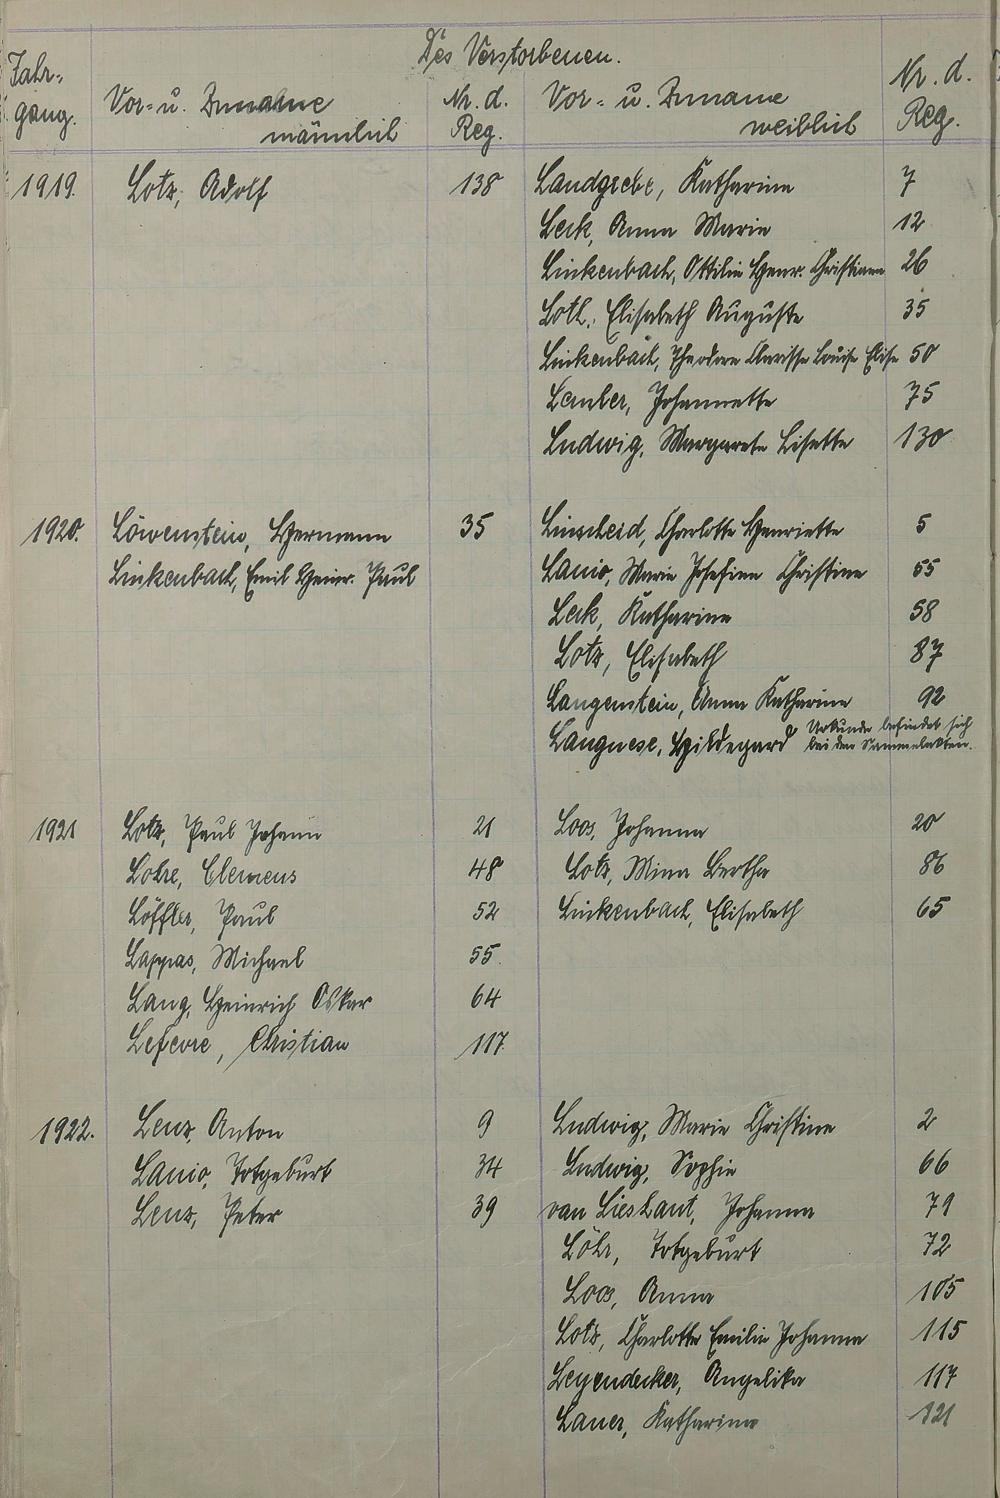 Des Verstorbenen.
Jahr-
gang.
Vor- u. Zuname
männlich
Nr. d.
Reg.
Vor- u. Zuname
weiblich
Nr. d.
Reg.
1919. Lotz, Adolf 138 Landgrebe, Katharina 7
Leck, Anna Marie 12
Linkenbach, Ottilie Henr. Christiane 26
Loth, Elisabeth Auguste 35
Linkenbach, Theodore Clarisse Louise Elise 50
Lember, Johannette 75
Ludwig, Margarete Lisette 130
1920. Löwenstein, Hermann 35 Linscheid, Charlotte Henriette 5
Linkenbach, Emil Heinr. Paul Lanio, Marie Josefine Christine 55
Leck, Katharina 58
Lotz, Elisabeth 87
Langenstein, Anna Katharine 92
Langnese, Hildegard Urkunde befindet sich
bei den Sammelakten.
1921 Lotz, Paul Johann 21 Loos, Johanna 20
Lohre, Clemens 48 Lotz, Mina Bertha 86
Löffler, Paul 52 Linkenbach, Elisabeth 65
Lappas, Michael 55.
Lang, Heinrich Oskar 64
Lefevre, Christian 117
1922. Lenz, Anton 9 Ludwig, Marie Christine 2
Lanio, Totgeburt 34 Ludwig, Sophie 66
Lenz, Peter 39 van Lieshaut, Johanna 79
Löhr, Totgeburt 72
Loos, Anna 105
Lotz, Charlotte Emilie Johanna 115
Leyendecker, Angelika 117
Lauer, Katharina 121